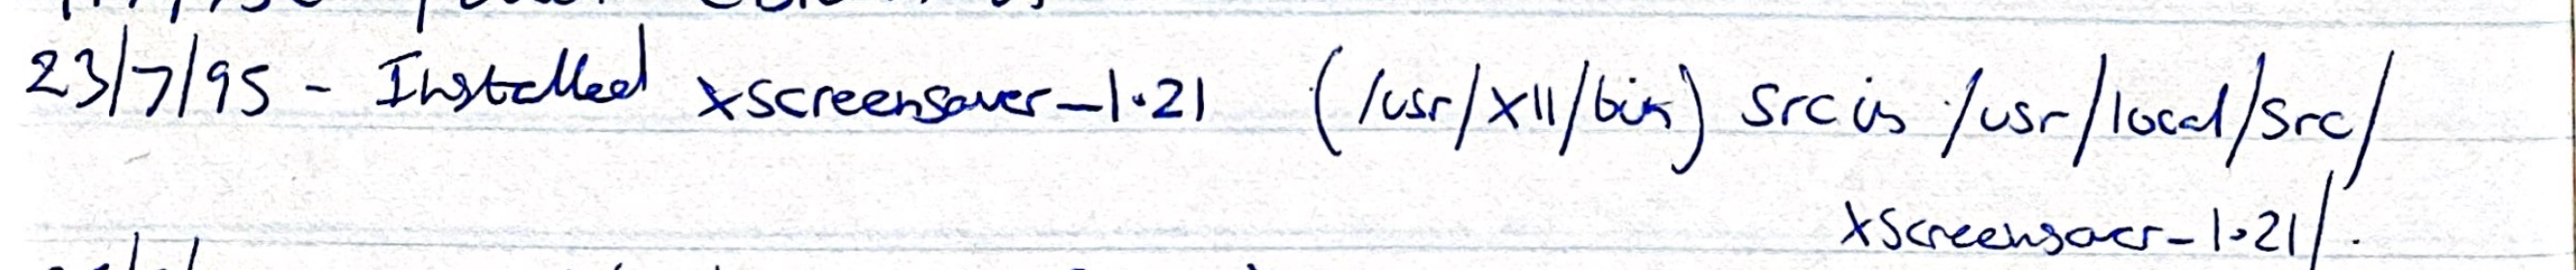 23/7/95 - Installed xscreensaver-1.21 (/usr/X11/bin) Src is /usr/local/src/
xscreensaver-1.21/.